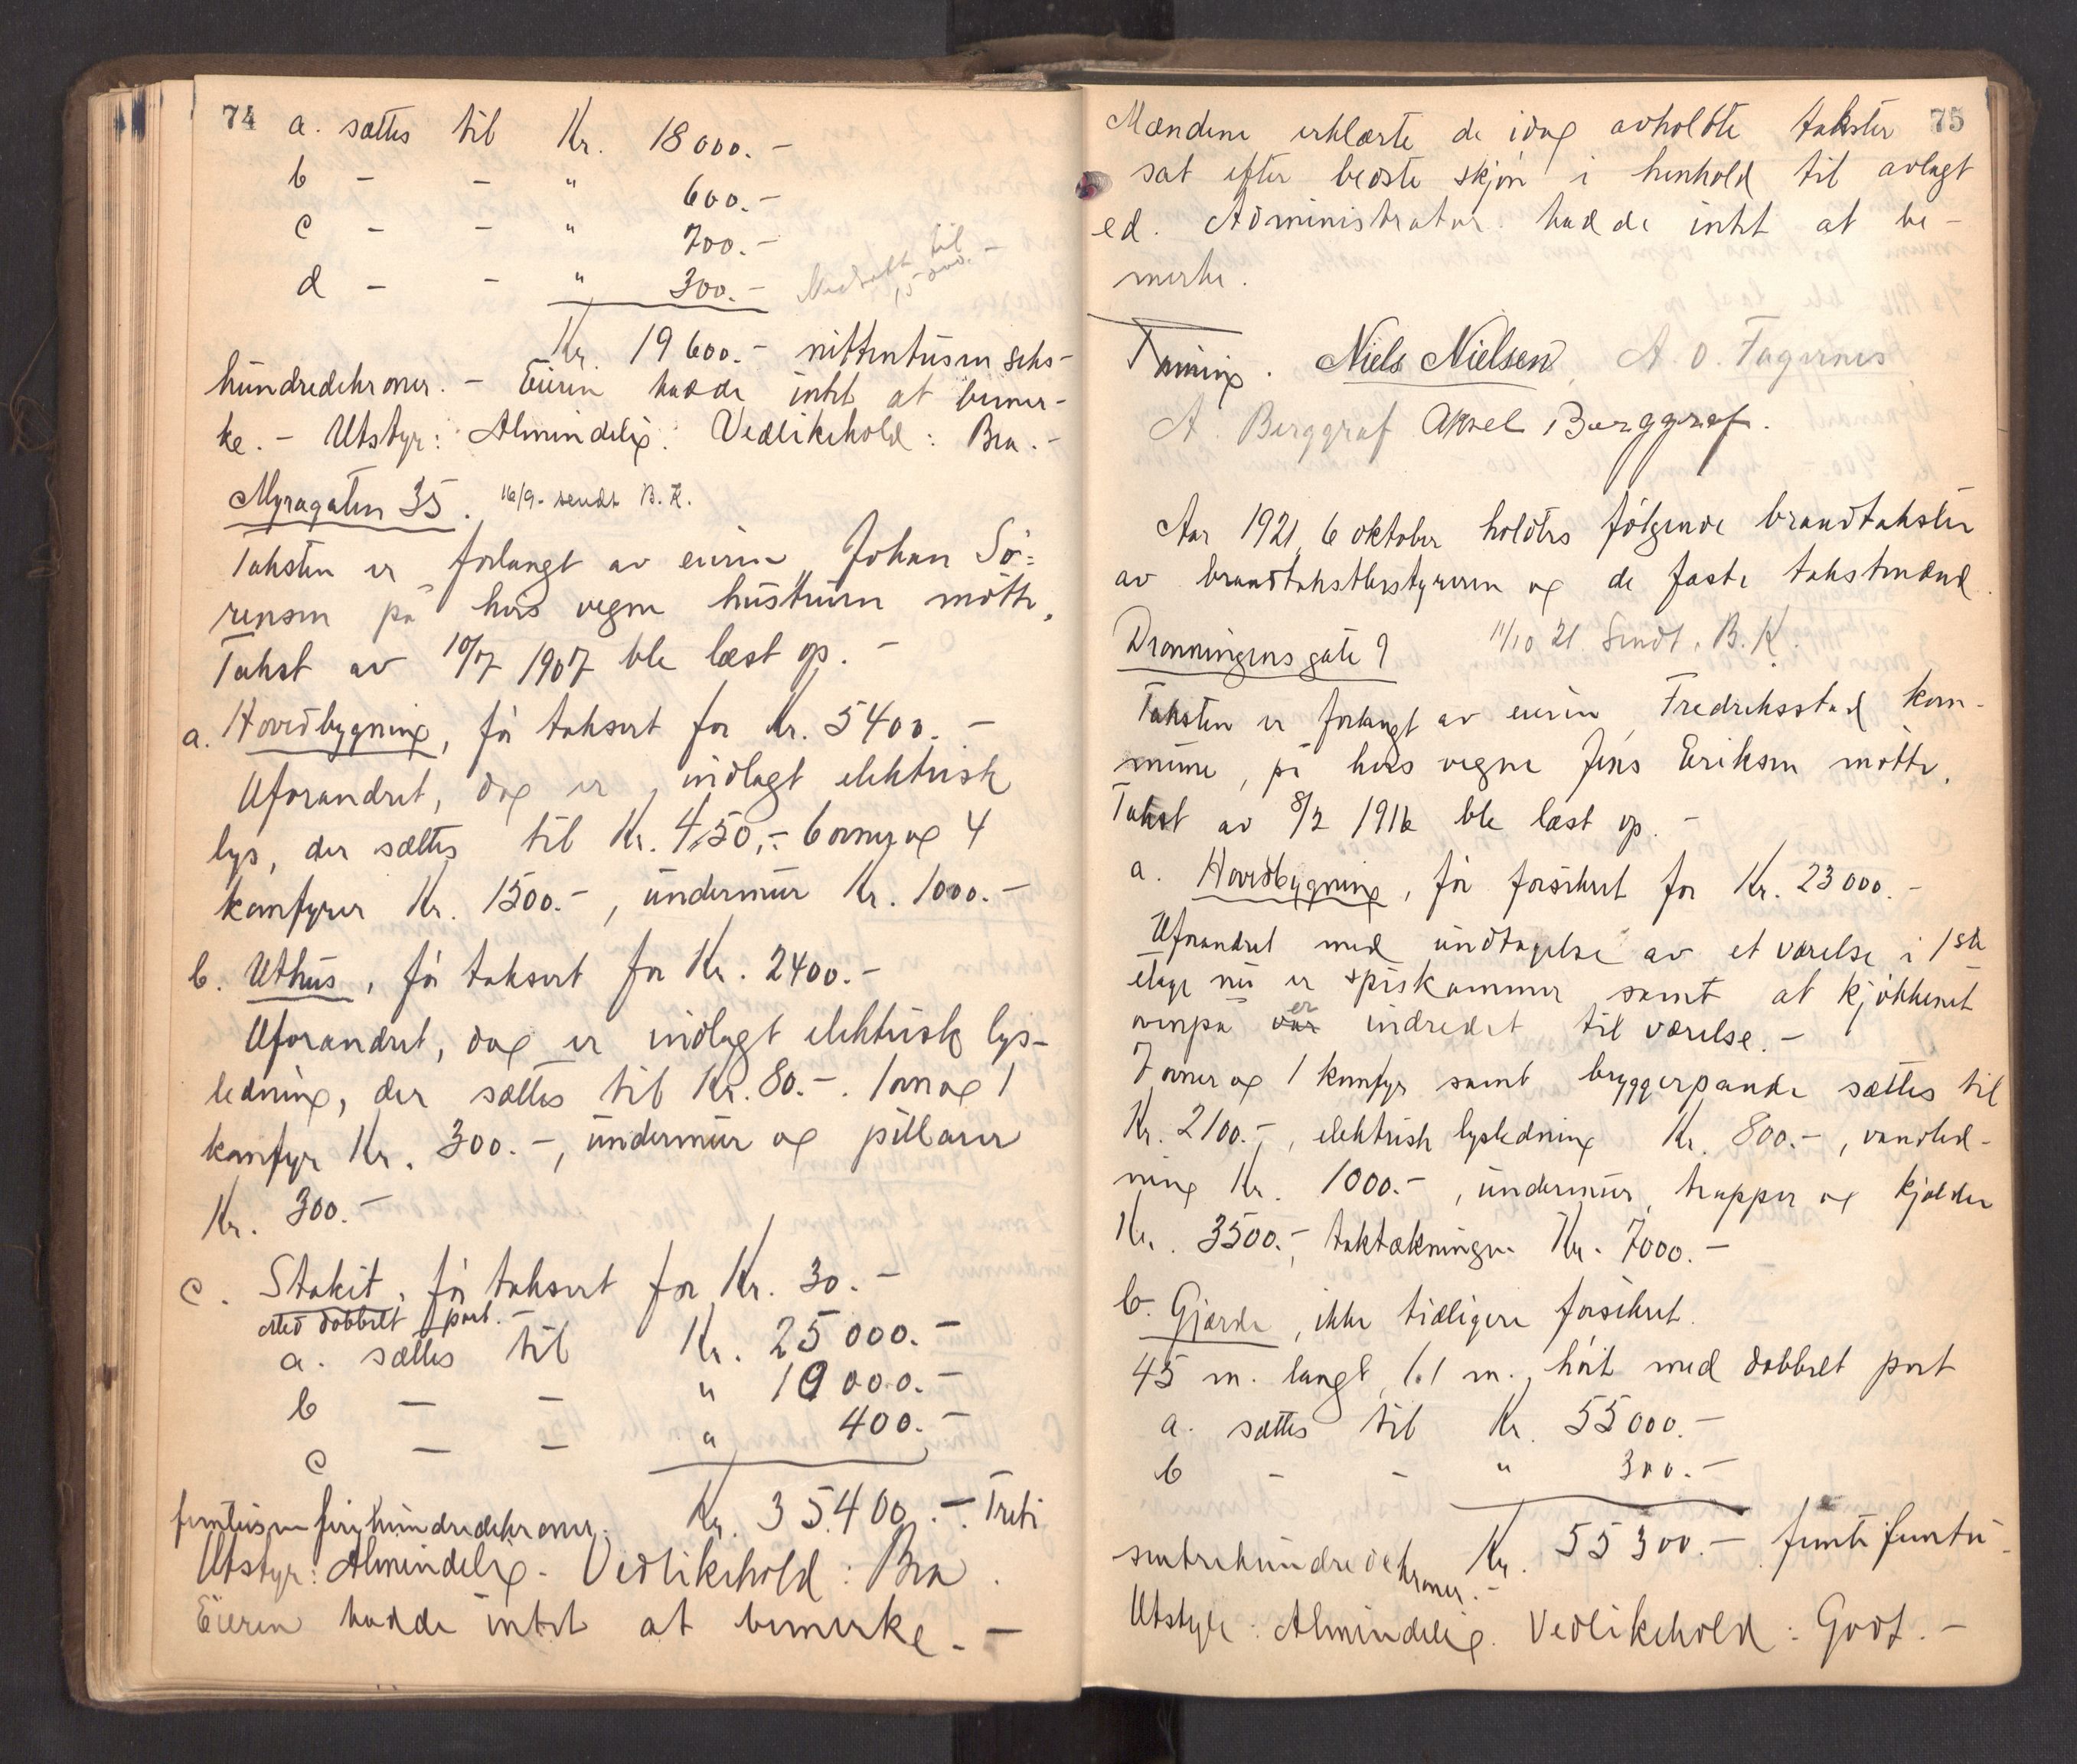 74
a. sættes til Kr. 18000.-
b - - " 600.-
c - - " 700.-
d - - " 300.- Nedsatt til 15000.-
Kr. 19600.- nittentusen seks-
hundredekroner. - Eieren hadde intet at bemer-
ke. - Utstyr: Almindelig. Vedlikehold: Bra.-
Myragaten 35. 16/9. sendt B.K.
Taksten er forlangt av eieren Johan Sö=
rensen på hvis vegne hustruen mötte.
Takst av 10/7 1907 ble læst op. -
a. Hovedbygning, før taksert for Kr. 5400.-
Uforandret, dog er indlagt elektrisk
lys, der sættes til Kr. 450,- 6 ovner og 4
komfyrer Kr. 1500.-, undermur Kr. 1000.-
b. Uthus, før taksert for Kr. 2400.-
Uforandret, dog er indlagt elektrisk lys-
ledning, der sættes til Kr. 80.-. 1 ovn og 1
komfyr Kr. 300.-, undermur og pillarer
Kr. 300.-
c. Stakit, før taksert for Kr. 30.-
med dobbelt port.-
a. sættes til Kr. 25000.-
b - - " 10000.-
c - - " 400.-
Kr. 35.400.-. Treti
femtusen firehundredekroner.
Utstyr: Almindelig. Vedlikehold: Bra.
Eieren hadde intet at bemerke.-
75
Mændene erklærte de idag avholdte takster
sat efter bedste skjøn i henhold til avlagt
ed. Administrator hadde intet at be-
merke.
Niels Nielsen, A. O. Fagernes
A. Berggraf Aksel Berggraf.
Aar 1921, 6 oktober holdtes følgende brandtakster
av brandtakstbestyreren og de faste takstmænd.
Dronningens gate 9 11/10 21 Sendt. B.K.
Taksten er forlangt av eieren Fredriksstad kom-
mune, på hvis vegne Jens Eriksen mötte.
Takst av 8/2 1916 ble læst op. -
a. Hovedbygning, før forsikret for Kr. 23000.-
Uforandret med undtagelse av et værelse i 1ste
etage nu er spiskammer samt at kjökkenet
ovenpå var er indredet til værelse.-
7 ovner og 1 komfyr samt bryggerpande sættes til
Kr. 2100.-, elektrisk lysledning Kr. 800.-, vandled-
ning Kr. 1000.-, undermur, trapper og kjælder
Kr. 3500.-, taktækningen Kr. 7000.-
b. Gjærde, ikke tidligere forsikret.
45 m. langt, 1.1 m. höit med dobbelt port
a. sættes til Kr. 55000.-
b - - " 300.-
Kr. 55300.- femti femtu-
sentrehundredekroner.-
Utstyr: Almindelig. Vedlikehold: Godt.-